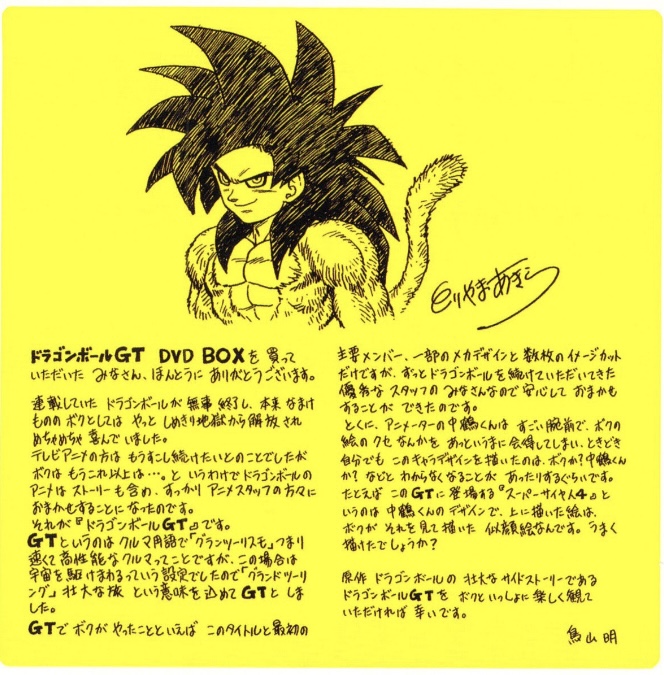 とりやまあきら
ドラゴンボールGT DVD BOXを買って
いただいた みなさん、ほんとうに ありがとうございます。
連載していた ドラゴンボールが 無事 終了し、本来 なまけ
ものの ボクとしては やっと しめきり地獄から解放 され
めちゃめちゃ 喜んで いました。
テレビアニメの方は もうすこし続けたいとのことでしたが
ボクは もうこれ以上は…。と いうわけで ドラゴンボールの
アニメは ストーリーも含め、すっかり アニメスタッフの方々に
おまかせすることに なったのです。
それが『ドラゴンボールGT』です。
GTというのは クルマ用語で「グランツーリスモ」つまり
速くて高性能な クルマってことですが、この場合は
宇宙を駆けまわるっていう設定でしたので「グランドツーリ
ング」壮大な旅 という意味を込めて GTと しま
した。
GTで ボクが やったことといえば このタイトルと最初の
主要メンバー、一部のメカデザインと 数枚の イメージカット
だけですが、ずっとドラゴンボールを続けていただいてきた
優秀な スタッフの みなさんなので 安心して おまかせ
することが できたのです。
とくに、アニメーターの 中鶴くんは すごい腕前で、ボクの
絵の クセ なんかを あっというまに会得してしまい、ときどき
自分でも このキャラデザインを描いたのは、ボクか?中鶴くん
か? などと わからなくなることが あったりするぐらいです。
たとえば このGTに 登場する『スーパーサイヤ人4』と
いうのは 中鶴くんの デザインで、上に描いた絵は、
ボクが それを見て描いた 似顔絵なんです。うまく
描けたでしょうか?
原作 ドラゴンボールの 壮大な サイドストーリーである
ドラゴンボールGTを ボクといっしょに 楽しく観て
いただければ 幸いです。
鳥山 明